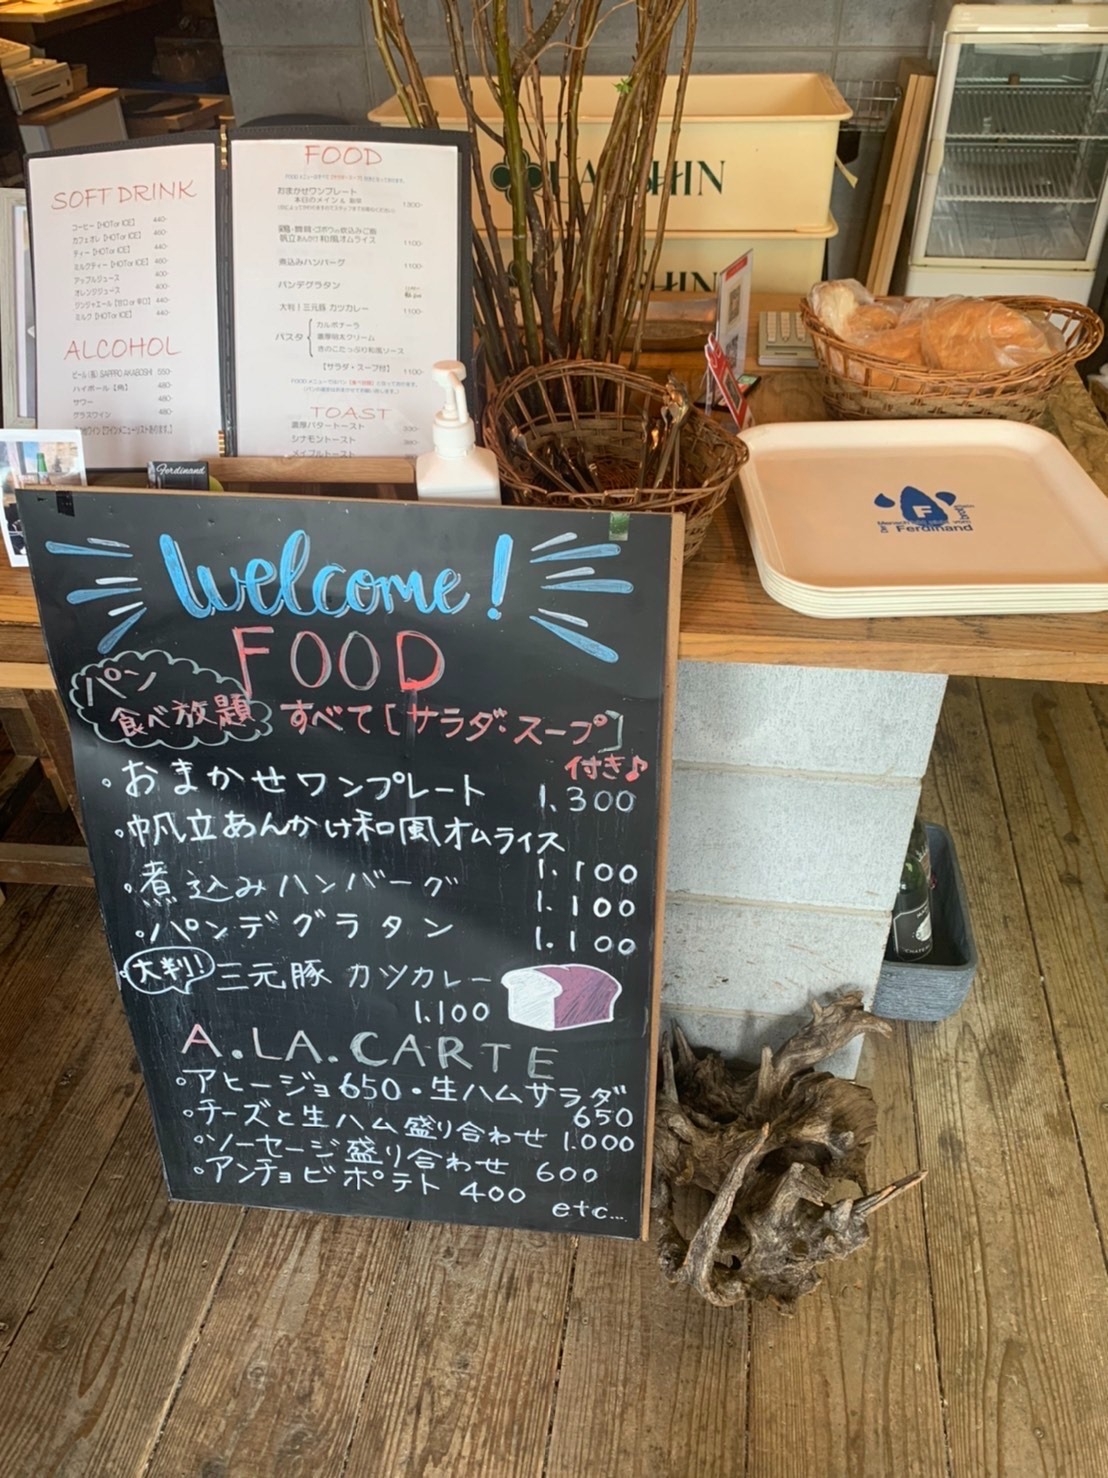 SOFT DRINK
コーヒー [HOT or ICE] 440-
カフェオレ [HOT or ICE] 460-
ティー [HOT or ICE] 440-
ミルクティー [HOT or ICE] 460-
アップルジュース 400-
オレンジジュース 400-
ジンジャエール [甘口 or 辛口] 440-
ミルク [HOT or ICE] 440-
ALCOHOL
SAPPORO AKABOSHI 550-
ハイボール 480-
サワー 480-
グラスワイン 480-
FOOD
おまかせワンプレート
本日のメイン & 1300-
帆立あんかけ 和風オムライス 1100-
煮込みハンバーグ 1100-
パンデグラタン
大判！三元豚 カツカレー 1100-
パスタ
カルボナーラ
濃厚明太クリーム
きのこたっぷり和風ソース
【サラダ・スープ付】 1100-
TOAST
濃厚バタートースト 330-
シナモントースト 380-
メイプルトースト
HANSHIN
Ferdinand
F
Ferdinand
welcome!
FOOD
パン
食べ放題
すべて[サラダ・スープ]
付き♪
・おまかせワンプレート 1.300
・帆立あんかけ和風オムライス
1.100
・煮込みハンバーグ 1.100
・パンデグラタン 1.100
・大判! 三元豚 カツカレー
1.100
A.LA.CARTE
・アヒージョ650・生ハムサラダ
650
・チーズと生ハム盛り合わせ 1.000
・ソーセージ盛り合わせ 600
・アンチョビポテト 400
etc...